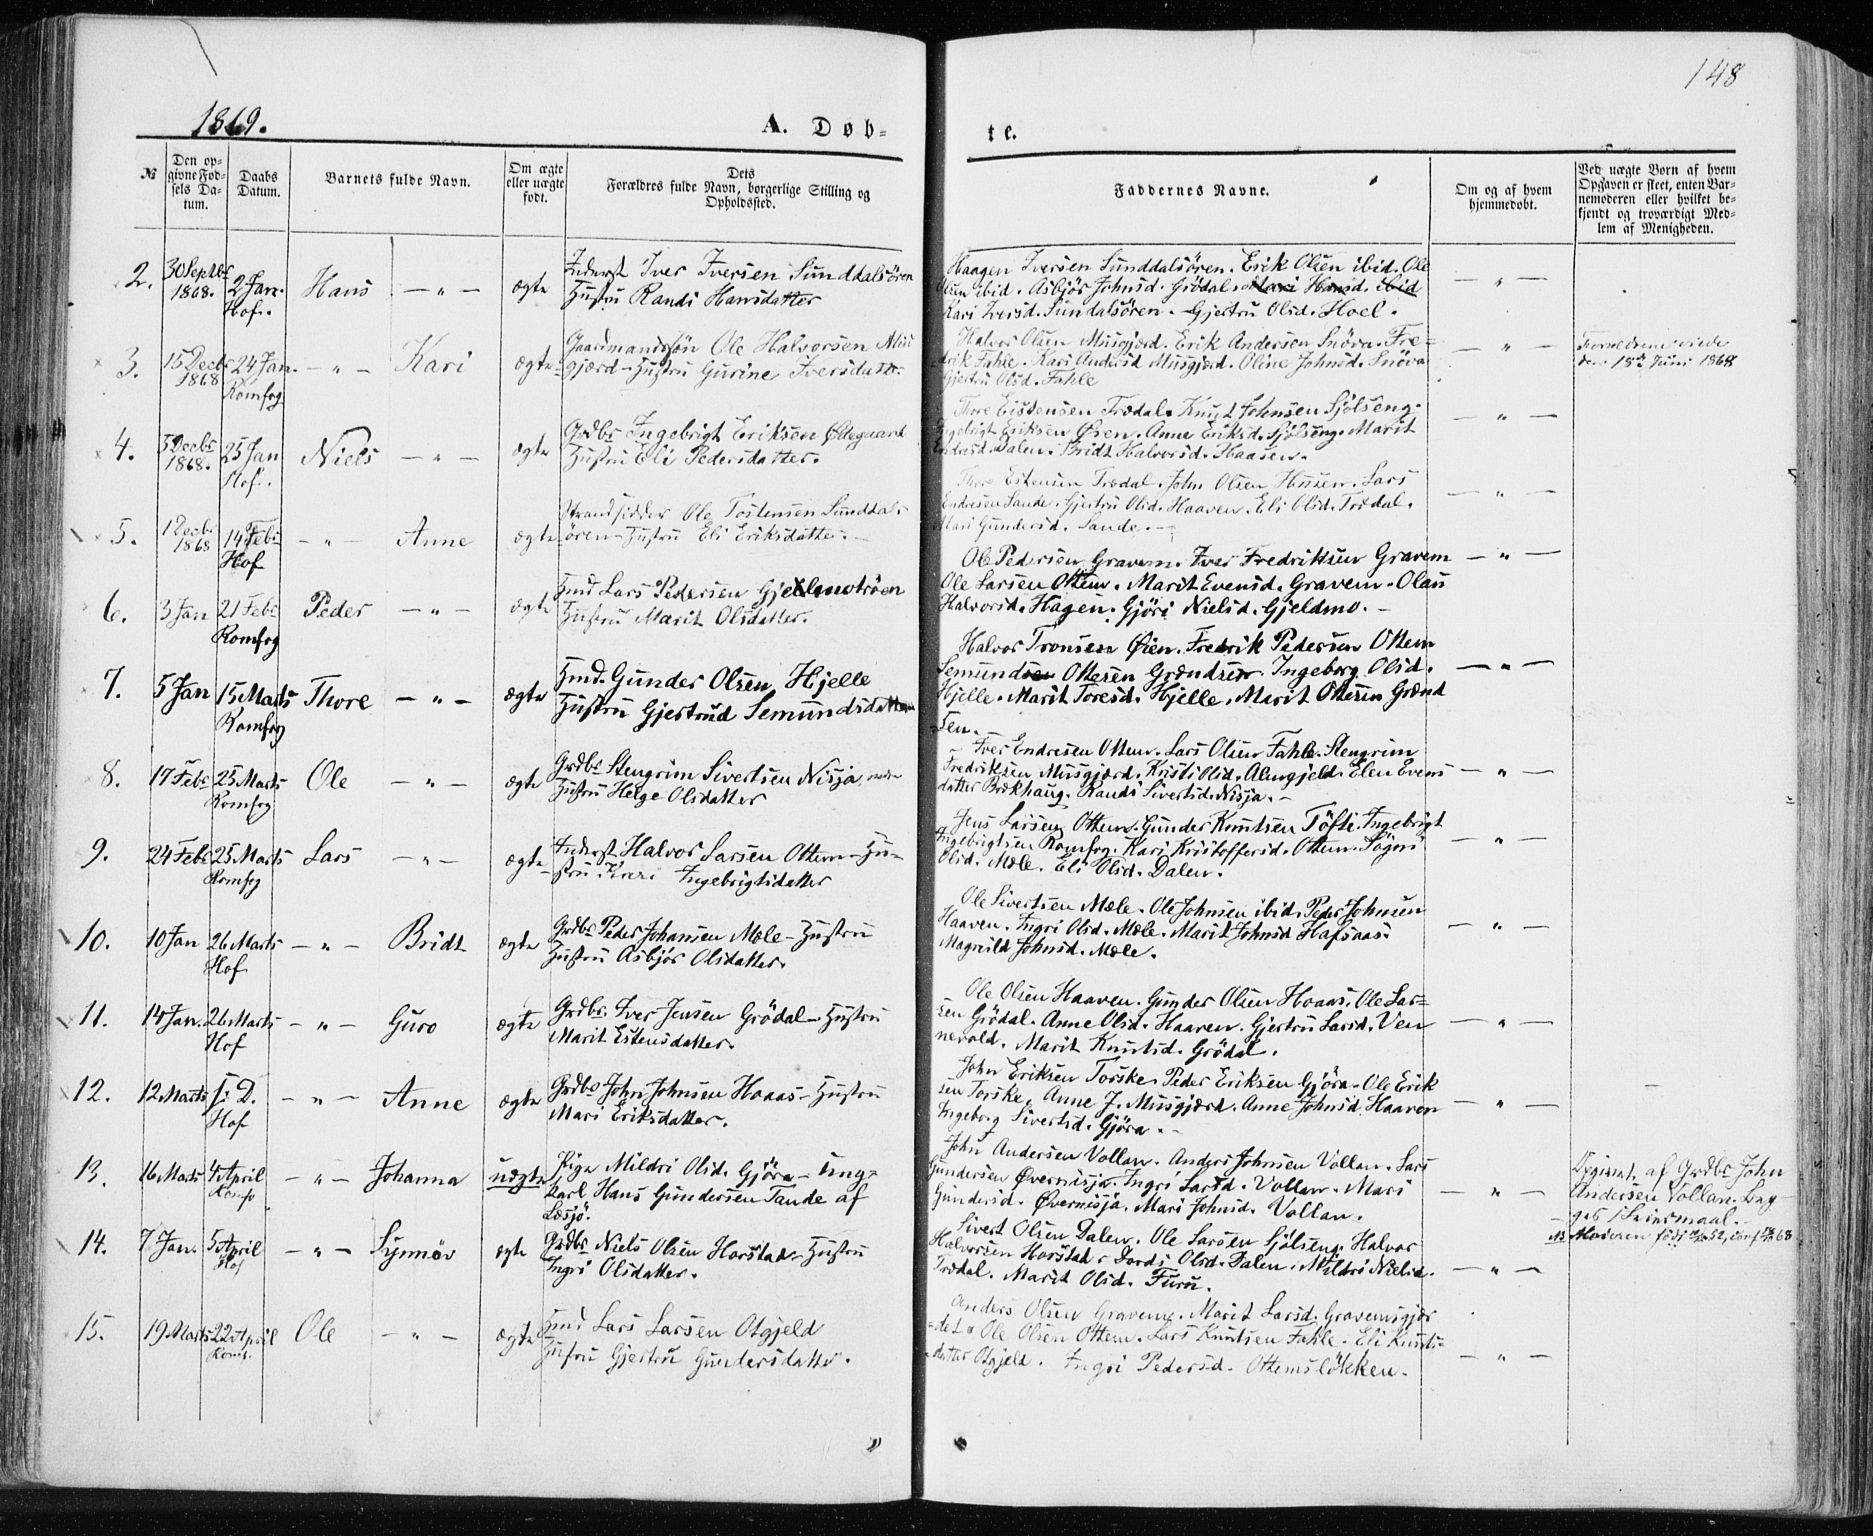 148
1869.
A. Døb-
te.
№
Den op-
givne Fød-
sels Da-
tum.
Daabs
Datum.
Barnets fulde Navn.
Om ægte
eller uægte
født.
Dets
Forældres fulde Navn, borgerlige Stilling og
Opholdssted.
Faddernes Navne.
Om og af hvem
hjemmedøbt.
Ved uægte Børn af hvem
Opgaven er skeet, enten Bar-
nemoderen eller hvilket be-
kjendt og troværdigt Med-
lem af Menigheden.
2. 30 Septbr 1868. 2 Jan. Hof. Hans — " — ægte
Inderst Iver Iversen Sunddalsören
Hustru Randi Hansdatter
Haagen Iversen Sunddalsören. Erik Olsen ibid. Ole
Olsen ibid. Asbjör Johnsd. Grödal. Mari Hansd. ibid
Kari Iversd. Sundalsören. Gjertru Olsd. Hoel.
— " —
3. 15 Decbr 1868 24 Jan. Romfog — " — Kari ægte
Gaardmandssön Ole Halvorsen Mus
gjærd - Hustru Gurine Iversdatter
Halvor Olsen Musgjærd. Erik Andersen Snöva. Fre=
drik Fahle. Kari Andersd Musgjærd. Oline Johnsd. Snöva
Gjertru Olsd. Fahle
— " —
Forældrene viede
den 15de Juni 1868
4. 3 Decbr 1868. 25 Jan Hof. Niels — " — ægte
Grdbr Ingebrigt Eriksen Ödegaard
Hustru Eli Pedersdatter.
Thore Eistensen Trædal. Knut Johnsen Sjölseng.
Ingebrigt Eriksen Ören. Anne Eriksd. Sjölseng. Marit
Endresd. Dalen. Bridt Halvorsd. Haasen.
— " —
5. 1 Decbr 1868 14 Febr Hof — " — Anne ægte
Strandsidder Ole Tostensen Sunddals
ören - Hustru Eli Eriksdatter. —
Thore Estensen Trædal. John Olsen Husen. Lars
Endresen Sande. Gjertru Olsd. Haaven. Eli Olsd. Trædal.
Mari Gundersd. Sande. —
— " —
6. 3 Jan 21 Febr Romfog Peder — " — ægte
Hmd Lars Pedersen Gjeldmotröen
Hustru Marit Olsdatter.
Ole Pedersen Gravem. Iver Fredriksen Gravem
Ole Larsen Ottem. Marit Evensd. Gravem. Olau
Halvorsd. Hagen. Gjöri Nielsd. Gjeldmo. —
— " —
7. 5 Jan 15 Marts Romfog Thore — " — ægte
Hmd. Gunder Olsen Hjelle
Hustru Gjertrud Semundsdatter
Halvor Tronsen Öien. Fredrik Pedersen Ottem
Semundsen Ottesen Grændsen. Ingeborg Olsd.
Hjelle. Marit Toresd. Hjelle. Marit Ottesen Grænd
sen.
— " —
8. 17 Febr 25 Marts Romfog Ole — " — ægte
Grdbr Stengrim Sivertsen Nisja nedre
Hustru Helge Olsdatter
Iver Endresen Ottem. Lars Olsen Fahle. Stengrim
Fredriksen Musgjærd. Kristi Olsd. Almgjeld. Elen Evens
datter Brækhaug. Randi Sivertsd. Nisja. —
— " —
9. 24 Febr 25 Marts Romfog Lars — " — ægte
Inderst Halvor Larsen Ottem - Hu-
stru Ingebrigtsdatter
Jens Larsen Ottem. Gunder Knutsen Töfte. Ingebrigt
Ingebrigtsen Romfog. Kari Kristoffersd. Ottem. Sögni
Olsd. Mæle. Eli Olsd. Dalen.
— " —
10. 10 Jan 26 Marts Hof — " — Bridt ægte
Grdbr Peder Johansen Mæle - Hustru
Hustru Asbjör Olsdatter.
Ole Sivertsen Mæle. Ole Johnsen ibid. Peder Johnsen
Haaven. Ingri Olsd. Mæle. Marit Johnsd Hafsaas.
Magnild Johnsd. Mæle.
— " —
11. 14 Jan. 26 Marts Hof — " — Guro ægte
Grdbr. Iver Jensen Grödal - Hustru
Marit Estensdatter.
Ole Olsen Haaven. Gunder Olsen Hoaas. Ole Lar=
sen Grödal. Anne Olsd. Haaven. Gjertru Larsd. Ven
nevold. Marit Knutsd. Grödal.
— " —
12. 12 Marts s. D. Hof — " — Anne ægte
Grdbr John Johnsen Hoaas - Hustru
Mari Eriksdatter.
John Eriksen Torske. Peder Eriksen Gjöra. Ole Erik
sen Torske. Anne J. Musgjærd. Anne Johnsd. Haaven
Ingeborg Sivertsd. Gjöra. —
— " —
13. 16 Marts 4 April Romfo — " — Johanna uægte
Pige Mildri Olsd. Gjöra - Ung-
karl Hans Gundersen Tande af
Læsjö.
John Andersen Vollan. Anders Johnsen Vollan. Lars
Gundersen Övernisja. Ingri Larsd. Vollan. Mari
Gundersd. Övernisja. Mari Johnsd. Vollan.
— " —
Opgivet af Grdbr John
Andersen Vollan.
Leiermaal.
NB Moderen födt
14. 7 Jan. 5 April Hof — " — Synnöv ægte
Grdbr Niels Olsen Horstad - Hustru
Ingri Olsdatter.
Sivert Olsen Dalen. Ole Larsen Sjölseng. Halvor
Halvorsen Horstad. Dordi Olsd. Dalen. Mildri Nielsd.
Trædal. Marit Olsd. Furu.
— " —
15. 19 Marts 22 April Romf. Ole — " — ægte
Hmd Lars Larsen Otgjeld
Hustru Gjertru Gundersdatter.
Anders Olsen Gravem. Marit Larsd. Gravemsgjær
det. Ole Olsen Ottem. Lars Knutsen Fahle. Eli Knuts=
datter Otgjeld. Ingri Pedersd. Ottemslökken.
— " —